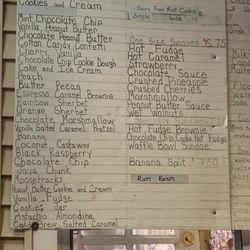 Cookies and Cream
Mint Chocolate Chip
Vanilla Peanut Butter
Chocolate Peanut Butter
Cotton Candy Confetti
Cherry Vanilla
Chocolate Chip Cookie Dough
Cake and Ice Cream
Peach
Butter Pecan
Espresso Caramel Brownie
Rainbow Sherbet
Orange Sherbet
Chocolate Marshmallow
Vanilla Salted Caramel Pretzel
Banana
Coconut Castaway
Black Raspberry
Chocolate Chip
Java Chunk
Moosetracks
Peanut Butter Cookies and Cream
Vanilla Fudge
Cookies Jar
Pistachio Almondine
Salted Caramel
Dairy Free Mint Cookie
Single
One Size Sundaes $5.75
Hot Fudge
Hot Caramel
Strawberry
Chocolate Sauce
Crushed Pineapple
Crushed Cherries
Marshmallow
Peanut Butter Sauce
Wet Walnuts
Hot Fudge Brownie
Chocolate Chip Cookie Hot Fudge
Waffle Bowl Sundae
Banana Split
Rum Raisin